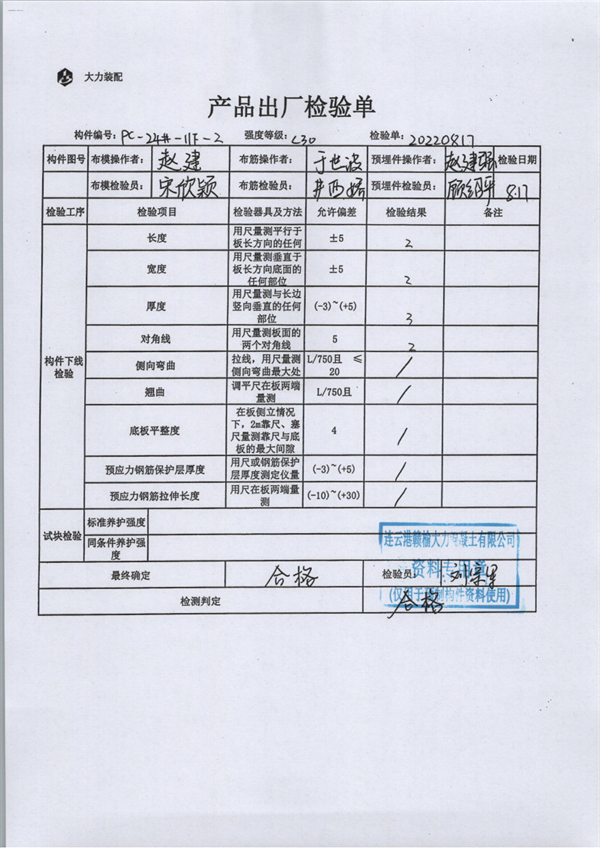 大力装配
产品出厂检验单
构件编号: PC-24#-11F-2 强度等级: C30 检验单: 20220817
构件图号 布模操作者: 赵建 布筋操作者: 于世波 预埋件操作者: 赵建 检验日期
布模检验员: 宋欣颖 布筋检验员: 预埋件检验员: 8.17
检验工序 检验项目 检验器具及方法 允许偏差 检验结果 备注
构件下线检验
长度 用尺量测平行于板长方向的任何 ±5 2
宽度 用尺量测垂直于板长方向底面的任何部位 ±5 2
厚度 用尺量测与长边竖向垂直的任何部位 (-3)~(+5) 3
对角线 用尺量测板面的两个对角线 5 2
侧向弯曲 拉线,用尺量测侧向弯曲最大处 L/750且 ≤20 /
翘曲 调平尺在板两端量测 L/750且 /
底板平整度 在板侧立情况下,2m靠尺、塞尺量测靠尺与底板的最大间隙 4 /
预应力钢筋保护层厚度 用尺或钢筋保护层厚度测定仪量 (-3)~(+5) /
预应力钢筋拉伸长度 用尺在板两端量测 (-10)~(+30) /
试块检验 标准养护强度
同条件养护强度
最终确定 合格 检验员:
检测判定 合格
连云港赣榆大力混凝土有限公司
资料专用章
(仅用于预制构件资料使用)